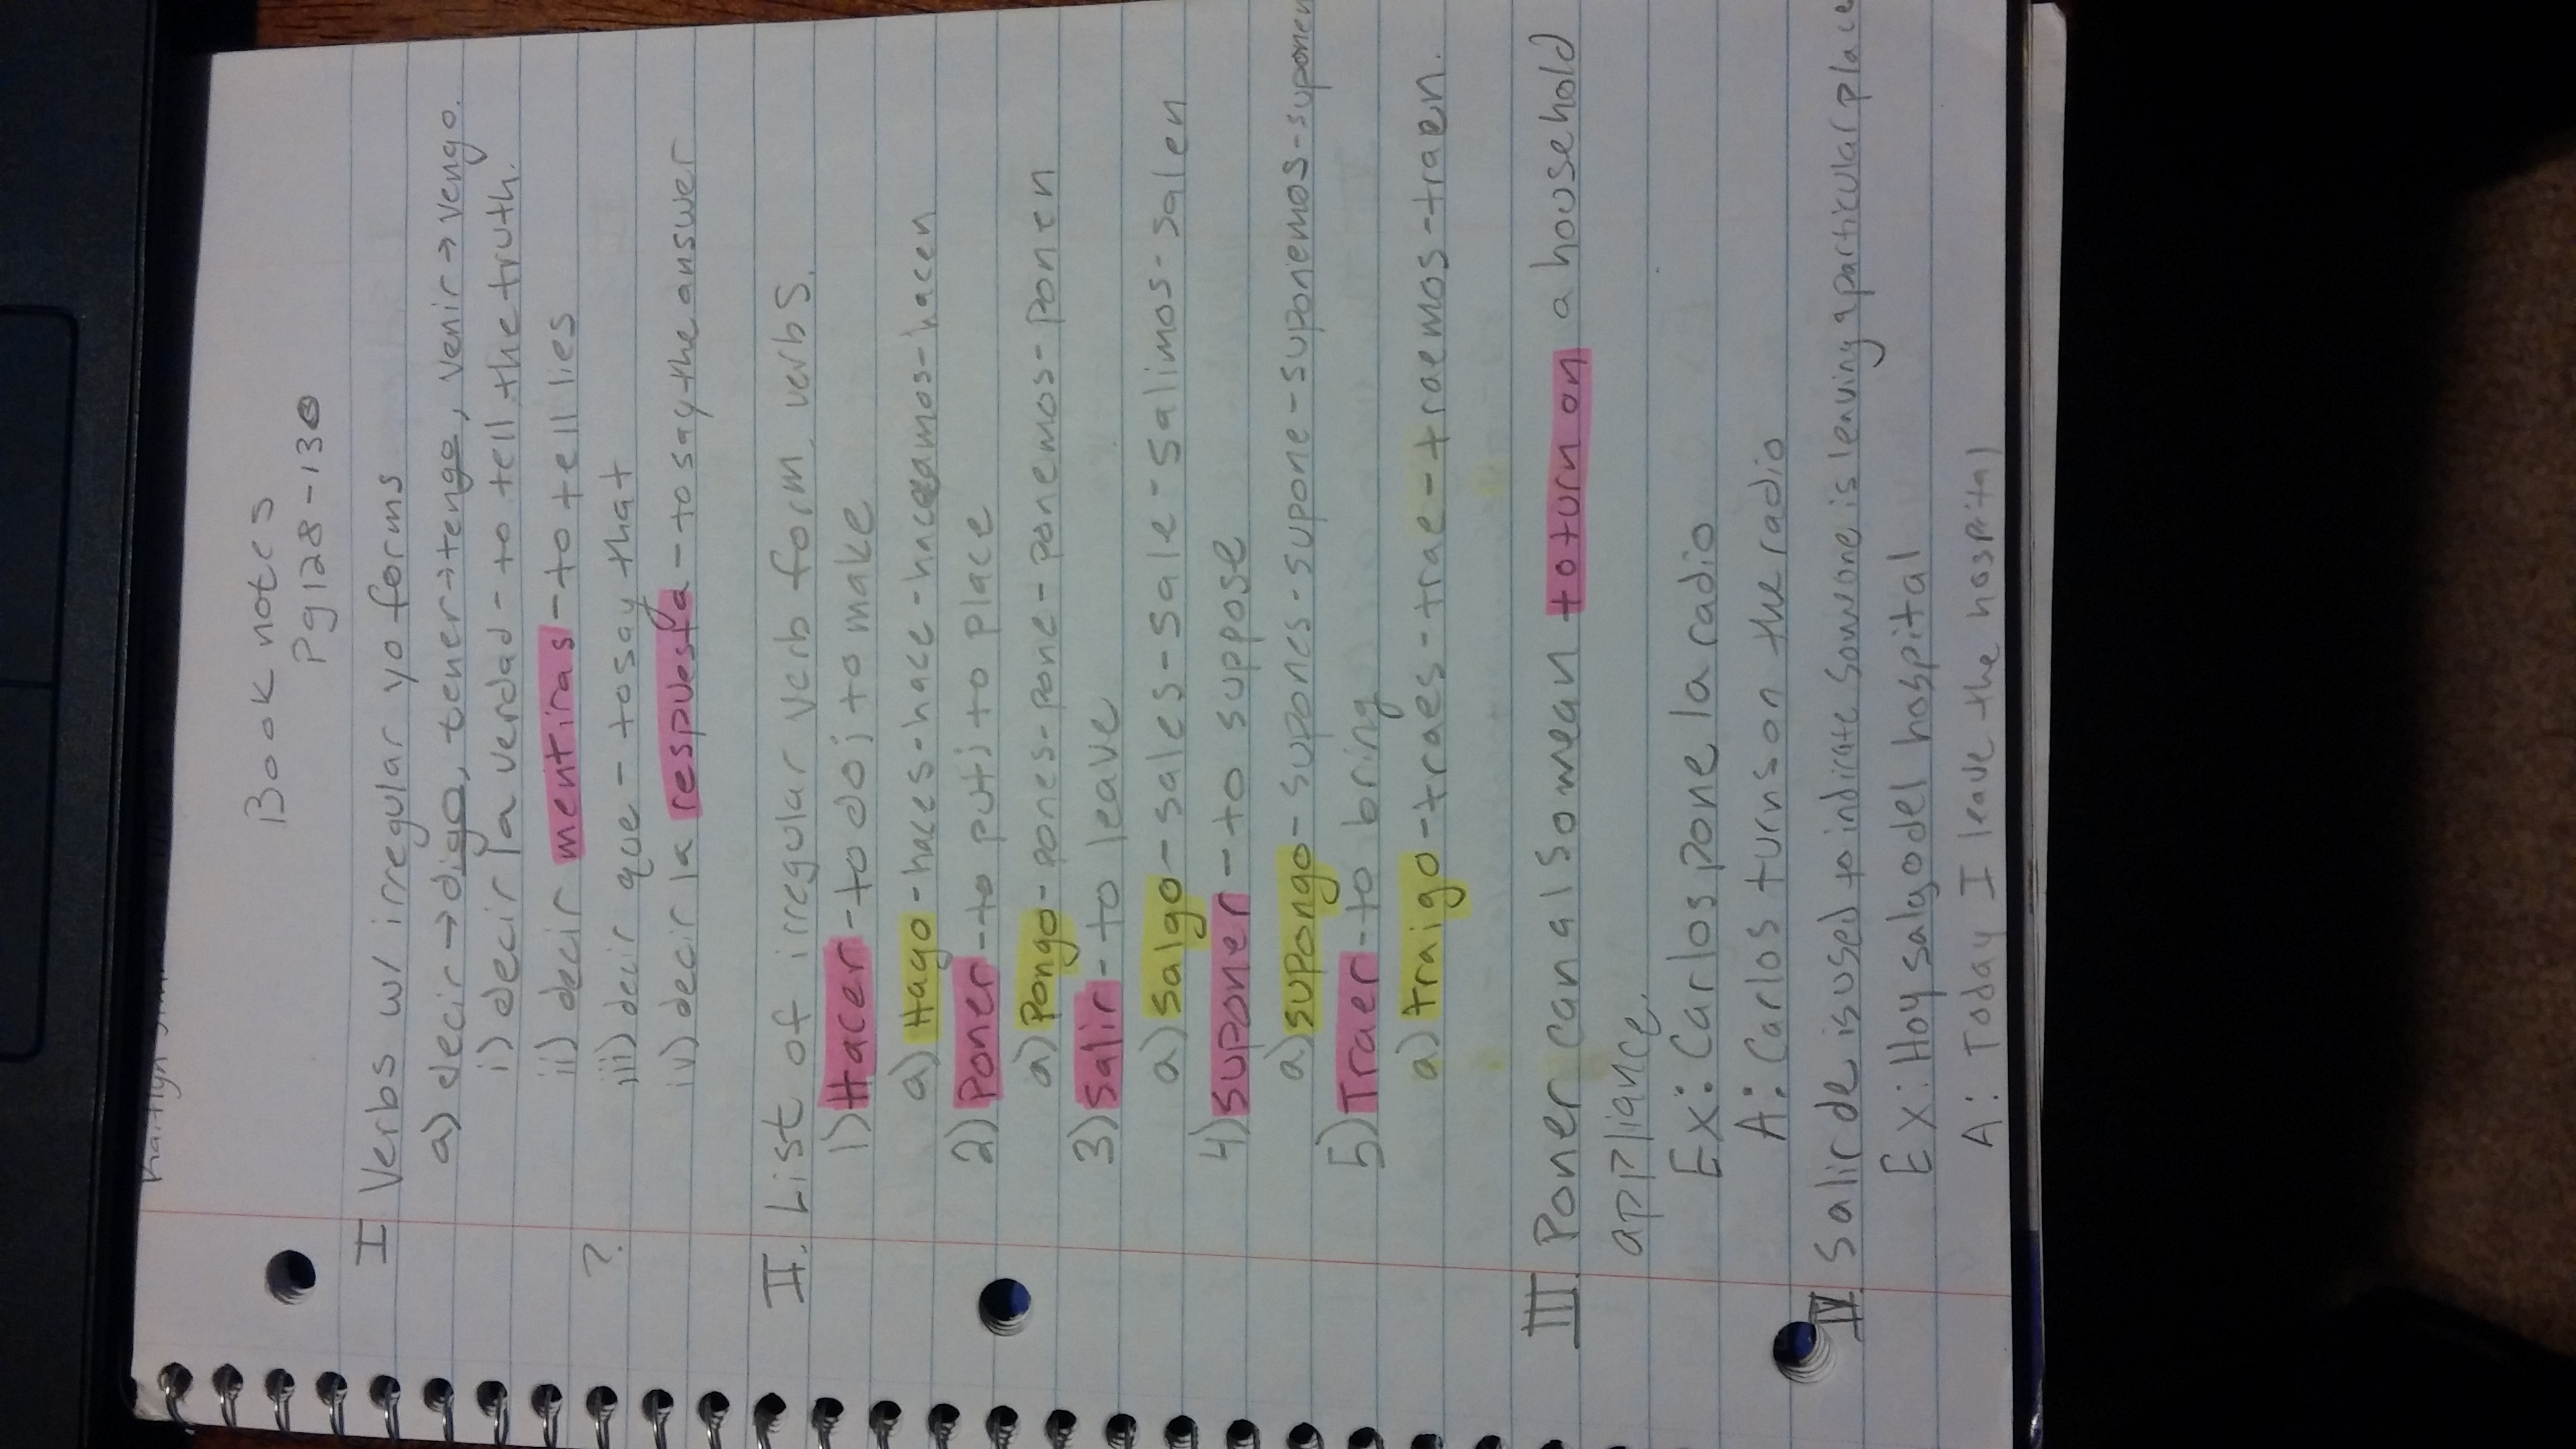 Book notes
Pg 128-130
I Verbs w/ irregular yo forms
a) decir→digo, tener→tengo, venir→vengo.
i) decir la verdad - to tell the truth.
ii) decir mentiras - to tell lies
? iii) decir que - to say that
iv) decir la respuesta - to say the answer
II. List of irregular verb form verbs.
1) Hacer - to do; to make
a) Hago - haces - hace - hacemos - hacen
2) Poner - to put; to place
a) Pongo - pones - pone - ponemos - ponen
3) Salir - to leave
a) Salgo - sales - sale - salimos - salen
4) Suponer - to suppose
a) supongo - supones - supone - suponemos - suponen
5) Traer - to bring
a) traigo - traes - trae - traemos - traen.
III. Poner can also mean to turn on a household
appliance.
Ex: Carlos pone la radio
A: Carlos turns on the radio
IV. Salir de is used to indicate someone is leaving a particular place
Ex: Hoy salgo del hospital
A: Today I leave the hospital